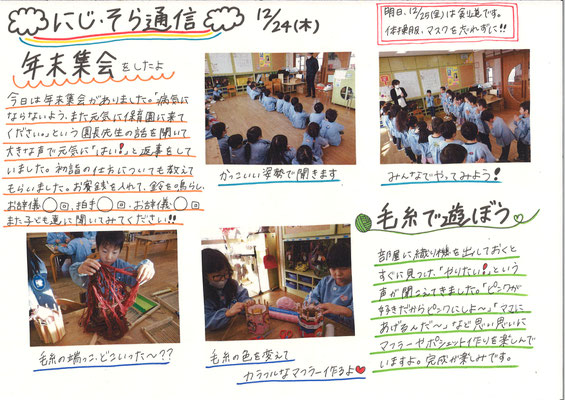 にじ・そら通信
12/24(木)
明日、12/25(金)は
体操服、マスクを忘れずに!!
年末集会をしたよ
今日は年末集会がありました。「病気に
ならないよう、また元気に保育園に来て
ください。」という園長先生の話を聞いて
大きな声で元気に「はい!」と返事をして
いました。初詣の仕方についても教えて
もらいました。お賽銭を入れて、鈴を鳴らし、
お辞儀◯回、拍手◯回、お辞儀◯回
また子ども達に聞いてみてください!!
かっこいい姿勢で聞きます
みんなでやってみよう!
毛糸で遊ぼう
部屋に織り機を出しておくと
すぐに見つけ、「やりたい!」という
声が聞こえてきました。「ピンクが
好きだからピンクにしよ〜」「ママに
あげるんだ〜」など思い思いに
マフラーやポシェット作りを楽しんで
いますよ。完成が楽しみです。
毛糸の端っこ、どこいった〜??
毛糸の色を変えて
カラフルなマフラー作るよ